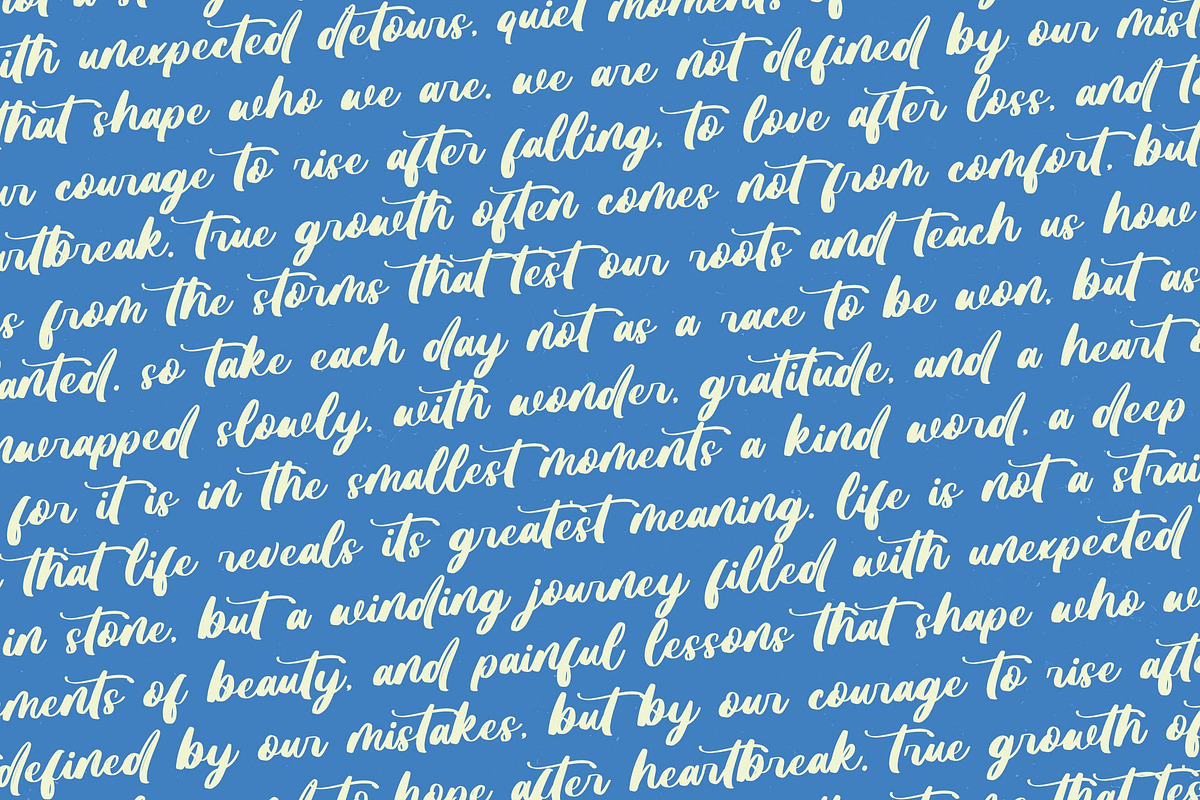 not a st
with unexpected detours, quiet moments of
that shape who we are. we are not defined by our mist
ur courage to rise after falling, to love after loss, and t
artbreak. True growth often comes not from comfort, but
s from the storms that test our roots and teach us how
anted. so take each day not as a race to be won, but as
nwrapped slowly, with wonder, gratitude, and a heart
for it is in the smallest moments a kind word, a deep
that life reveals its greatest meaning. life is not a strai
in stone, but a winding journey filled with unexpected
ments of beauty, and painful lessons that shape who we
defined by our mistakes, but by our courage to rise afte
to hope after heartbreak. True growth of
that tes